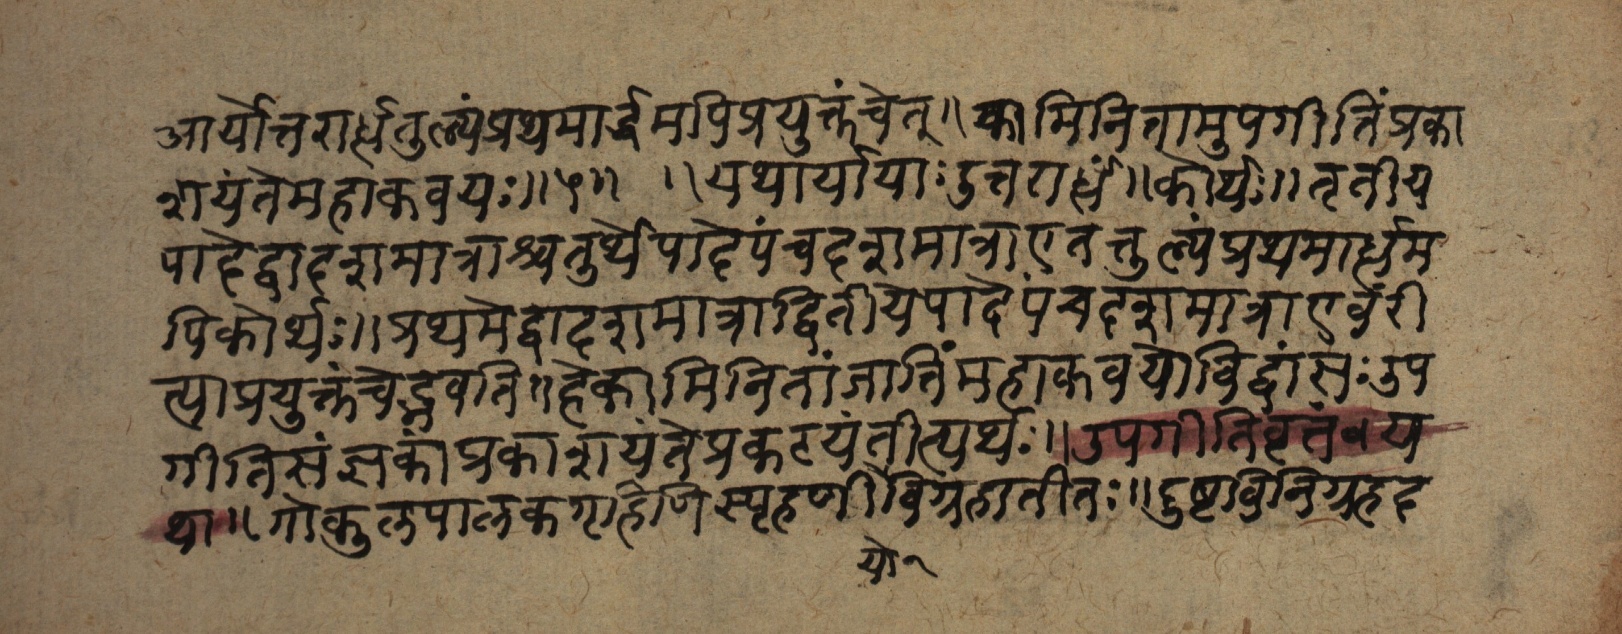 आर्योत्तरार्धतुल्यंप्रथमार्द्धमपिप्रयुक्तंचेत्॥कामिनितामुपगीतिंप्रका
शयंतेमहाकवयः॥५॥ ॥यथार्यायाःउत्तरार्धं॥कोर्थः॥तृतीय
पादेद्वादशमात्राश्चतुर्थेपादेपंचदशमात्राएतत्तुल्यंप्रथमार्धम
पिकोर्थः॥प्रथमेद्वादशमात्राद्वितीयेपादेपंचदशमात्राएवंरी
त्याप्रयुक्तंचेद्भवति॥हेकामिनितांजातिंमहाकवयोविद्वांसःउप
गीतिसंज्ञकांप्रकाशयंतेप्रकटयंतीत्यर्थः॥उपगीतिवृत्तंवय
था॥गोकुलपालकगृहिणिस्पृहणीविग्रहातीतः॥दुष्टविनिग्रहद
यो१